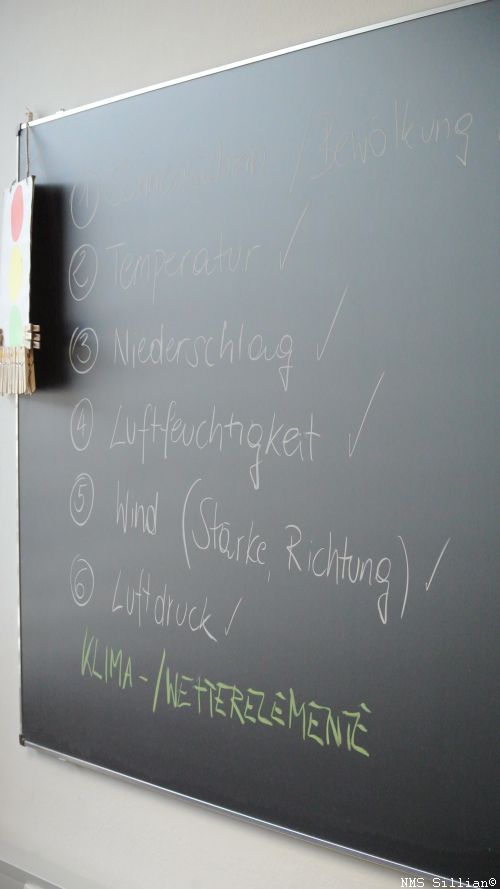 ① Sonnenschein / Bewölkung
② Temperatur ✓
③ Niederschlag ✓
④ Luftfeuchtigkeit ✓
⑤ Wind (Stärke, Richtung) ✓
⑥ Luftdruck ✓
KLIMA-/WETTERELEMENTE
NMS Sillian©